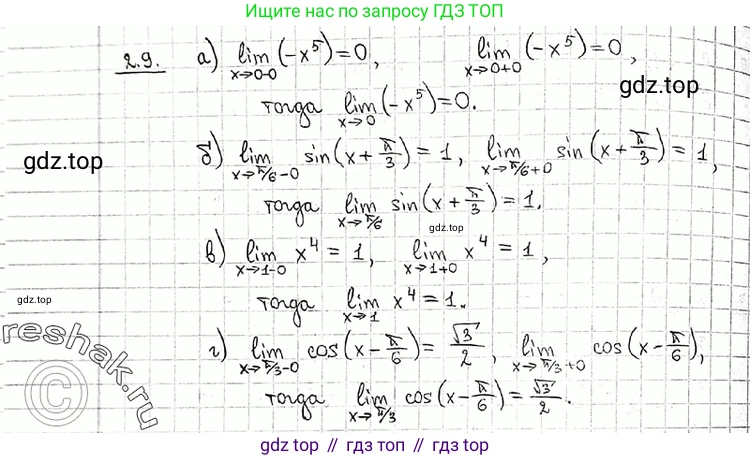 Ищите нас по запросу ГДЗ ТОП
2.9. а) lim x→0-0 (-x⁵)=0, lim x→0+0 (-x⁵)=0,
gdz.top
тогда lim x→0 (-x⁵)=0.
б) lim x→π/6-0 sin(x+π/3)=1, lim x→π/6+0 sin(x+π/3)=1,
gdz.top
тогда lim x→π/6 sin(x+π/3)=1.
gdz.top
в) lim x→1-0 x⁴=1, lim x→1+0 x⁴=1,
gdz.top
тогда lim x→1 x⁴=1.
reshak.ru
©
г) lim x→π/3-0 cos(x-π/6)=√3/2, lim x→π/3+0 cos(x-π/6),
тогда lim x→π/3 cos(x-π/6)=√3/2.
gdz top // гдз топ // gdz top